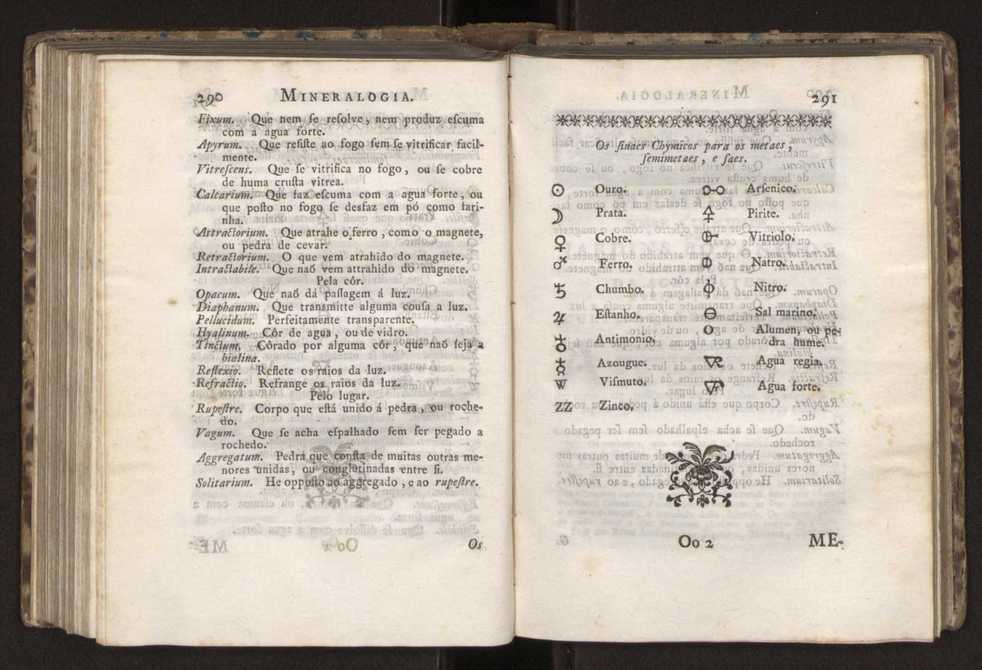 290 MINERALOGIA.
Fixum. Que nem ſe reſolve, nem produz eſcuma
com a agua forte.
Apyrum. Que reſiſte ao fogo ſem ſe vitrificar facil-
mente.
Vitreſcens. Que ſe vitrifica no fogo, ou ſe cobre
de huma cruſta vitrea.
Calcarium. Que faz eſcuma com a agua forte, ou
que poſto no fogo ſe desfaz em pó como fari-
nha.
Attractorium. Que atrahe o ferro, como o magnete,
ou pedra de cevar.
Retractorium. O que vem atrahido do magnete.
Intractabile. Que naõ vem attrahido do magnete.
Pela côr.
Opacum. Que naõ dá paſſagem á luz.
Diaphanum. Que tranſmitte alguma couſa a luz.
Pellucidum. Perfeitamente tranſparente.
Hyalinum. Côr de agua, ou de vidro.
Tinctum. Côrado por alguma côr, que naõ ſeja a
hialina.
Reflexio. Reflete os raios da luz.
Refractio. Refrange os raios da luz.
Pelo lugar.
Rupeſtre. Corpo que eſtá unido á pedra, ou roche-
do.
Vagum. Que ſe acha eſpalhado ſem ſer pegado a
rochedo.
Aggregatum. Pedra que conſta de muitas outras me-
nores unidas, ou conglotinadas entre ſi.
Solitarium. He oppoſto ao aggregado, e ao rupeſtre.
Os
291
Os ſinaes Chymicos para os metaes,
ſemimetaes, e ſaes.
☉ Ouro. Arſenico.
☽ Prata. Pirite.
♀ Cobre. Vitriolo.
♂ Ferro. Natro.
♄ Chumbo. Nitro.
♃ Eſtanho. Sal marino.
♁ Antimonio. Alumen, ou pe-
dra hume.
☿ Azougue. Agua regia.
W Viſmuto. Agua forte.
ZZ Zinco.
Oo 2 ME-